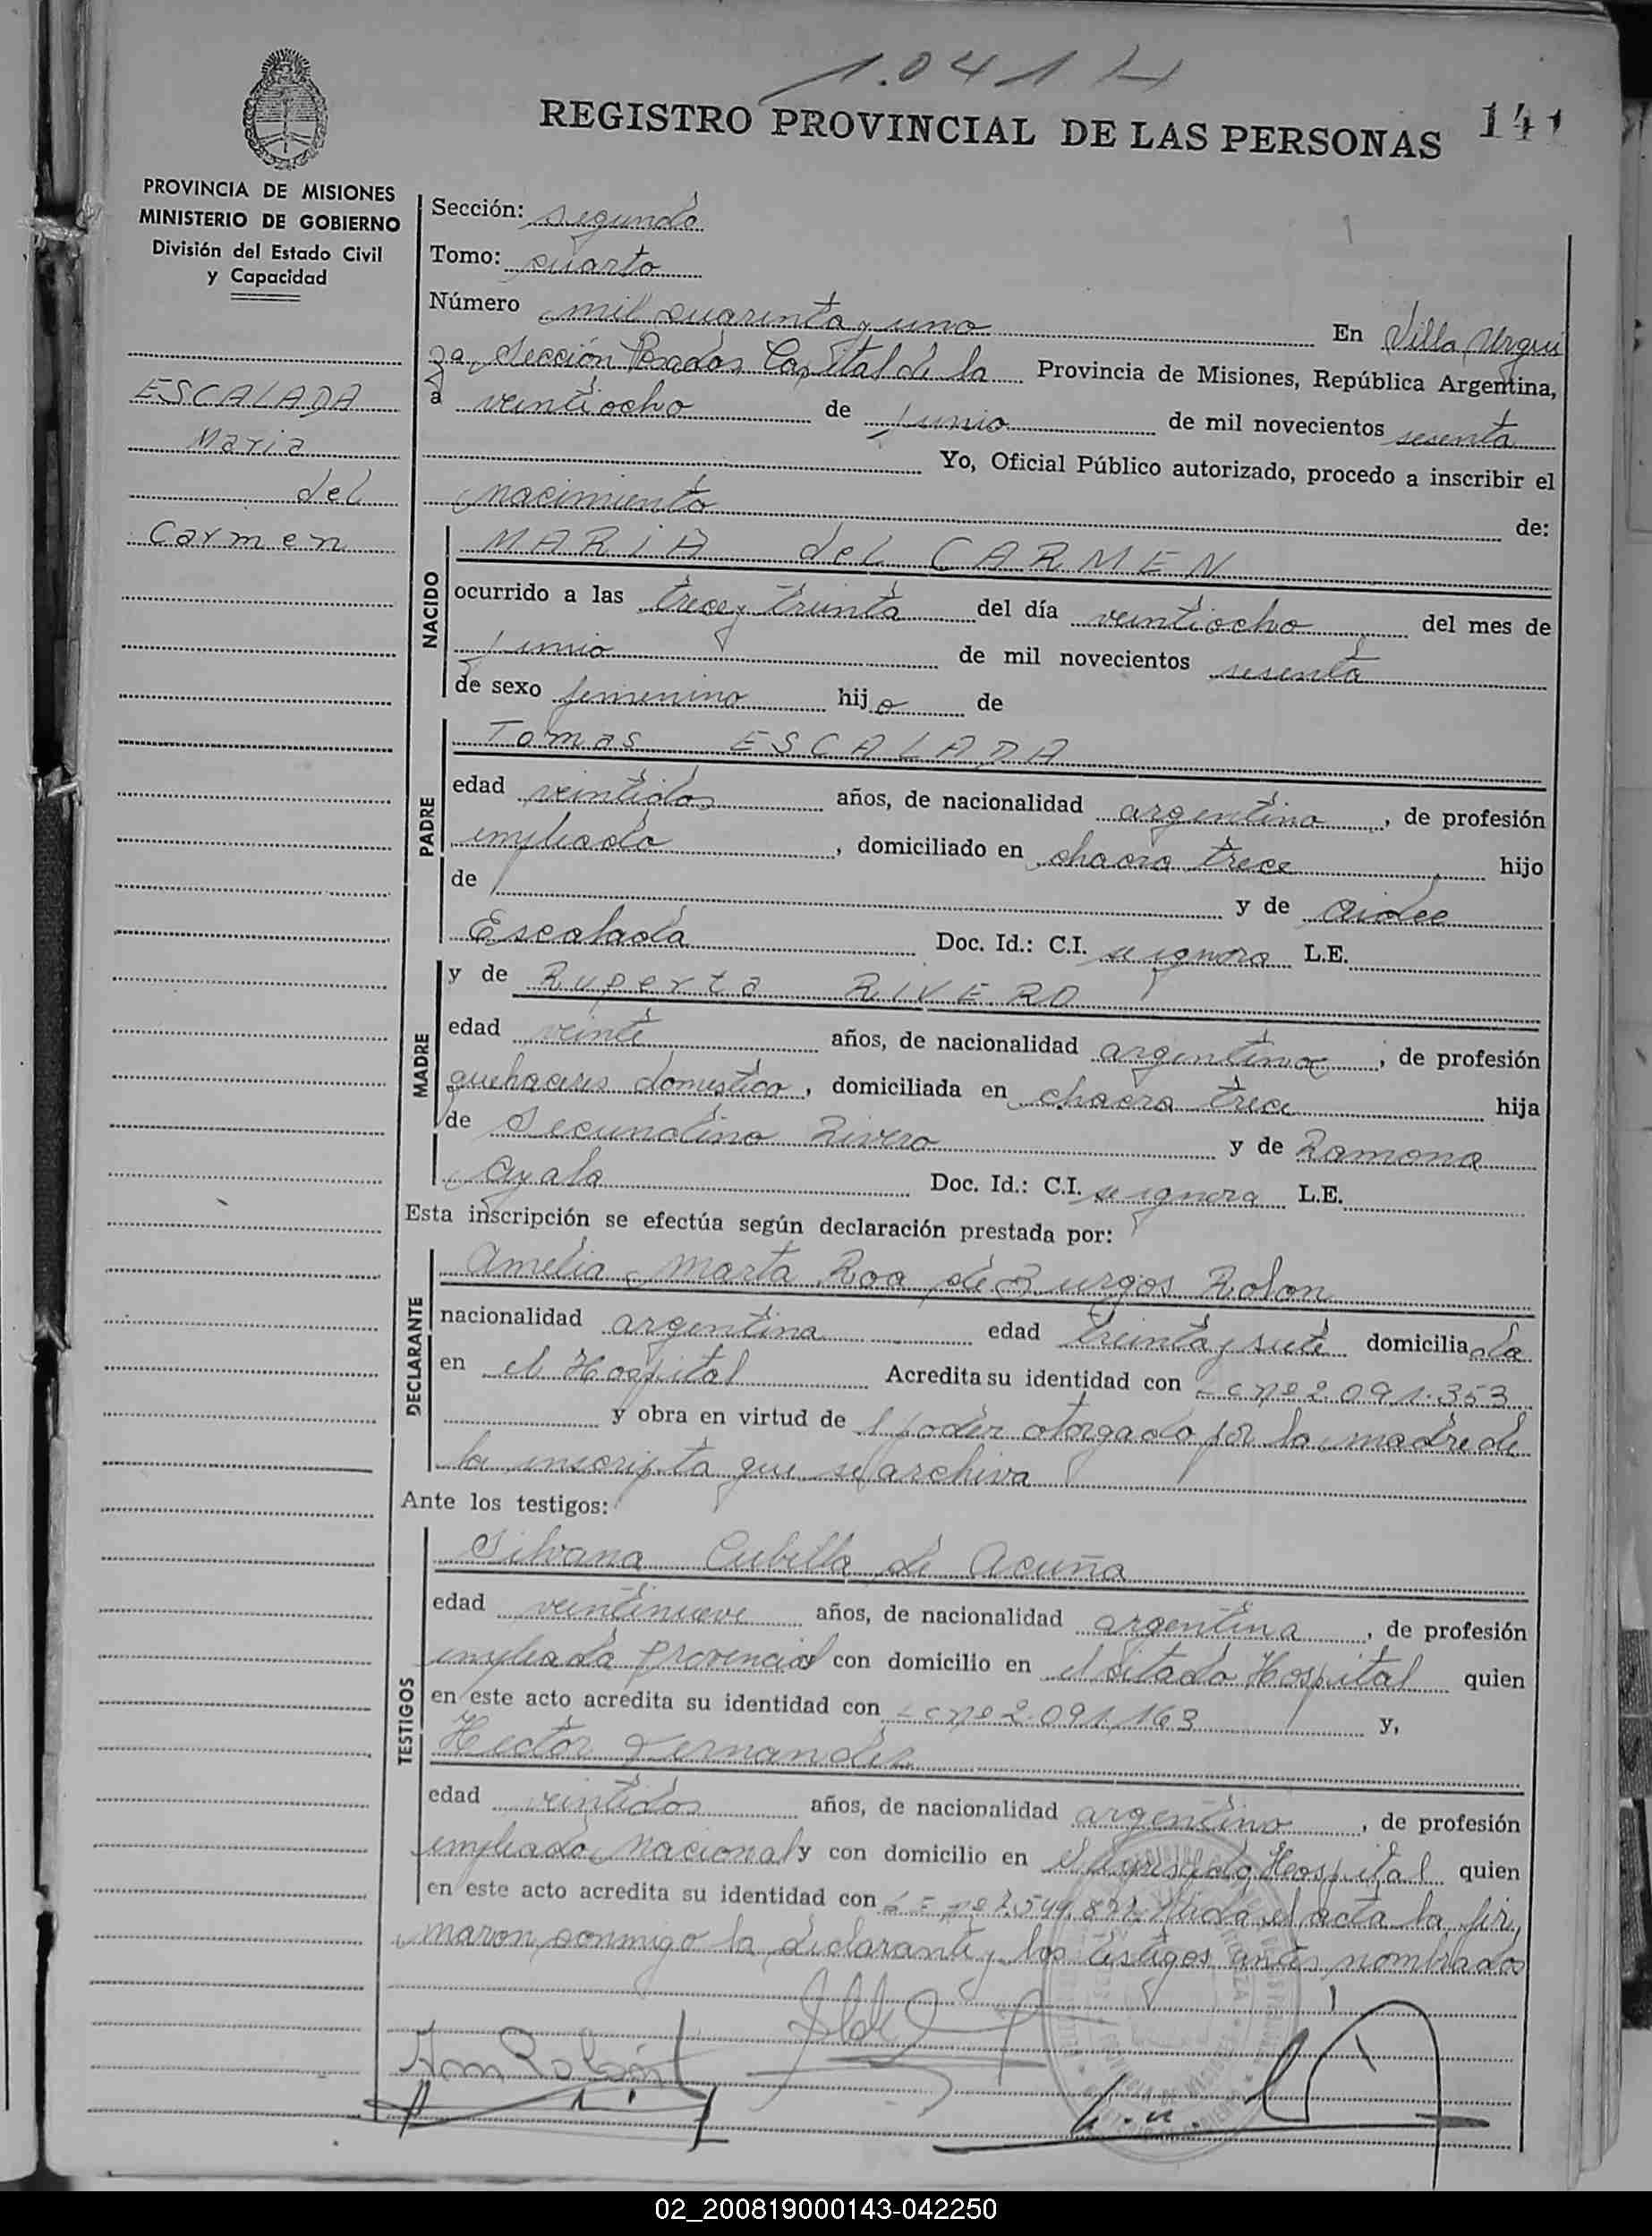 1.041
141
REGISTRO PROVINCIAL DE LAS PERSONAS
PROVINCIA DE MISIONES
MINISTERIO DE GOBIERNO
División del Estado Civil
y Capacidad
ESCALADA
Maria
del
Carmen
Sección: segunda
Tomo: cuarto
Número mil cuarenta y uno En Villa Urqui
za, Sección Posadas Capital de la Provincia de Misiones, República Argentina,
a veintiocho de junio de mil novecientos sesenta
Yo, Oficial Público autorizado, procedo a inscribir el
nacimiento de:
NACIDO
MARIA del CARMEN
ocurrido a las trece y treinta del día veintiocho del mes de
junio de mil novecientos sesenta
de sexo femenino hijo de
PADRE
Tomas ESCALADA
edad veintidos años, de nacionalidad argentino, de profesión
empleado, domiciliado en chacra trece hijo
de y de Aidee
Escalada Doc. Id.: C.I. se ignora L.E.
MADRE
y de Ruperta RIVERO
edad veinte años, de nacionalidad argentina, de profesión
quehaceres domestico, domiciliada en chacra trece hija
de Secundino Rivero y de Ramona
Ayala Doc. Id.: C.I. se ignora L.E.
Esta inscripción se efectúa según declaración prestada por:
DECLARANTE
Amelia Marta Roa de Burgos Rolon
nacionalidad argentina edad treinta y siete domiciliada
en el Hospital Acredita su identidad con L C nº 2.091.353
y obra en virtud del poder otorgado por la madre de
la inscripta que se archiva
Ante los testigos:
TESTIGOS
Silvana Cubilla de Acuña
edad veintinueve años, de nacionalidad argentina, de profesión
empleada provincial con domicilio en el citado Hospital quien
en este acto acredita su identidad con L C nº 2.091.163 y,
Hector Fernandez
edad veintidos años, de nacionalidad argentino, de profesión
empleado Nacional y con domicilio en el Hospital quien
en este acto acredita su identidad con L E nº 7.549.877. Leida el acta la fir
maron conmigo la declarante y los testigos antes nombrados
02_200819000143-042250